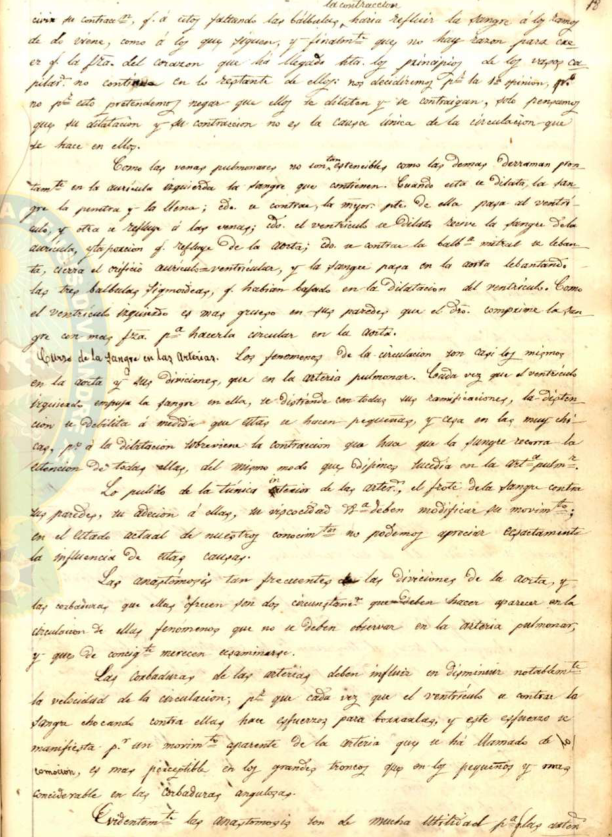 la contraccion
19
civir su contracn., q. á estos faltando las bálbulas, haria refluir la sangre á los ramos
de do viene, como á los que siguen, y finalmte. que no hay razon para cre
er q. la fza. del corazon que há llegado hta. los principios de los vasos ca
pilars. no continue en lo restante de ellos: nos decidiremos pr. la 1a. opinion,
no pr. esto pretendemos negar que ellos se dilaten y se contraigan, solo pensamos
que su dilatacion y su contraccion no es la causa única de la circulacion que
se hace en ellos.
Como las venas pulmonares no son tan estencibles como las demas derraman pron
tamte. en la aurícula izquierda la sangre que contienen. Cuando esta se dilata, la san
gre la penetra y la llena; cdo. se contrae, la myor. pte. de ella pasa al ventrí
culo, y otra se refluye á las venas; cdo. el ventrículo se dilata recive la sangre dela
aurícula, y la porcion q. refluye de la aorta; cdo. se contrae la balba. mitral se leban
ta, cierra el orificio aurículo=ventricular, y la sangre pasa en la aorta lebantando
las tres balbulas Sigmoideas, q. habian bajado en la dilatacion del ventrículo. Como
el ventrículo izquierdo es mas grueso en sus paredes que el dro. comprime la san
gre con mas fza. pa. hacerla circular en la aorta.
Curso de la sangre en las arterias. Los fenomenos de la circulacion son casi los mismos
en la aorta y sus diviciones, que en la arteria pulmonar. Cada vez que el ventriculo
izquierdo empuja la sangre en ella, se distiende con todas sus ramificaciones, la disten
cion se debilita á medida que estas se hacen pequeñas, y cesa en las muy chi
cas, pr. á la dilatacion sobreviene la contraccion que hace que la sangre recorra la
estencion de todas ellas, del mismo modo que digimos sucedia en la arta. pulma.
Lo pulido de la túnica interior de las arters., el frote dela sangre contra
sus paredes, su adecion á ellas, su viscocidad &a. deben modificar su movimto.;
en el estado actual de nuestros conocimtos. no podemos apreciar ecsactamente
la influencia de estas causas.
Las anastómosis tan frecuentes las diviciones de la aorta, y
las corbaduras que ellas ofrecen son dos circunstancs. que deben hacer aparecer en la
circulacion de ellas fenómenos que no se deben observar en la arteria pulmonar,
y que de consigte. merecen ecsaminarse.
Las corbaduras de las arterias deben influir en disminuir notablemte.
la velocidad de la circulacion; pr. que cada vez que el ventrículo se contrae la
sangre chocando contra ellas hace esfuerzos para borrarlas, y este esfuerzo se
manifiesta pr. un movimto. aparente de la arteria que se há llamado de lo
comocion, es mas perceptible en los grandes troncos que en los pequeños y mas
conciderable en las corbaduras angulosas.
Evidentemte. las anastomosis son de mucha utilidad pa. q. las arters